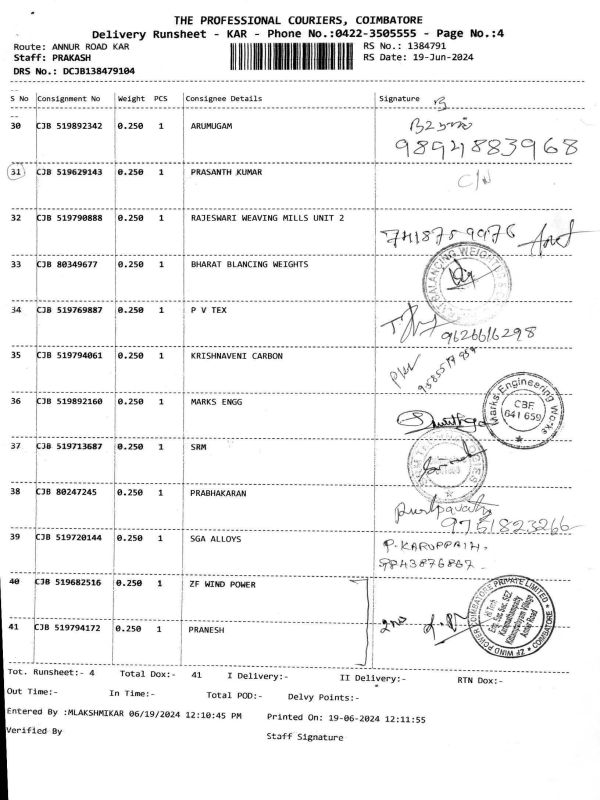 THE PROFESSIONAL COURIERS, COIMBATORE
Delivery Runsheet - KAR - Phone No.:0422-3505555 - Page No.:4
Route: ANNUR ROAD KAR RS No.: 1384791
Staff: PRAKASH RS Date: 19-Jun-2024
DRS No.: DCJB138479104
S No Consignment No Weight PCS Consignee Details Signature
30 CJB 519892342 0.250 1 ARUMUGAM
9894883968
31 CJB 519629143 0.250 1 PRASANTH KUMAR C/N
32 CJB 519790888 0.250 1 RAJESWARI WEAVING MILLS UNIT 2
33 CJB 80349677 0.250 1 BHARAT BLANCING WEIGHTS
BALANCING WEIGHT
34 CJB 519769887 0.250 1 P V TEX
9626616298
35 CJB 519794061 0.250 1 KRISHNAVENI CARBON
36 CJB 519892160 0.250 1 MARKS ENGG
Marks Engineering Works
CBE
641 659
37 CJB 519713687 0.250 1 SRM
38 CJB 80247245 0.250 1 PRABHAKARAN
9751823266
39 CJB 519720144 0.250 1 SGA ALLOYS
P. KARUPPAIH.
40 CJB 519682516 0.250 1 ZF WIND POWER
ZF WIND POWER COIMBATORE PRIVATE LIMITED * COIMBATORE
41 CJB 519794172 0.250 1 PRANESH
Tot. Runsheet:- 4 Total Dox:- 41 I Delivery:- II Delivery:- RTN Dox:-
Out Time:- In Time:- Total POD:- Delvy Points:-
Entered By :MLAKSHMIKAR 06/19/2024 12:10:45 PM Printed On: 19-06-2024 12:11:55
Verified By Staff Signature